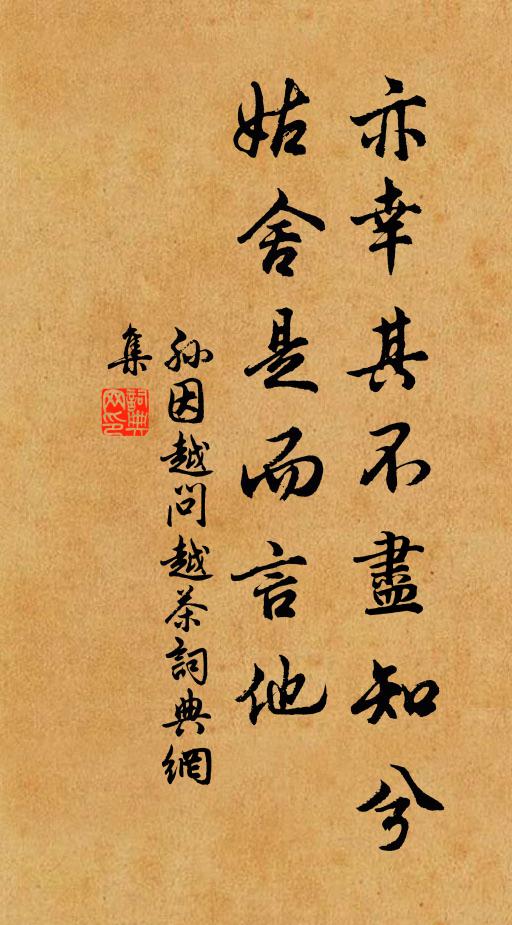 亦幸其不盡知兮
姑舍是而言他
孫因越問越茶詞典網
集
詞典
网印